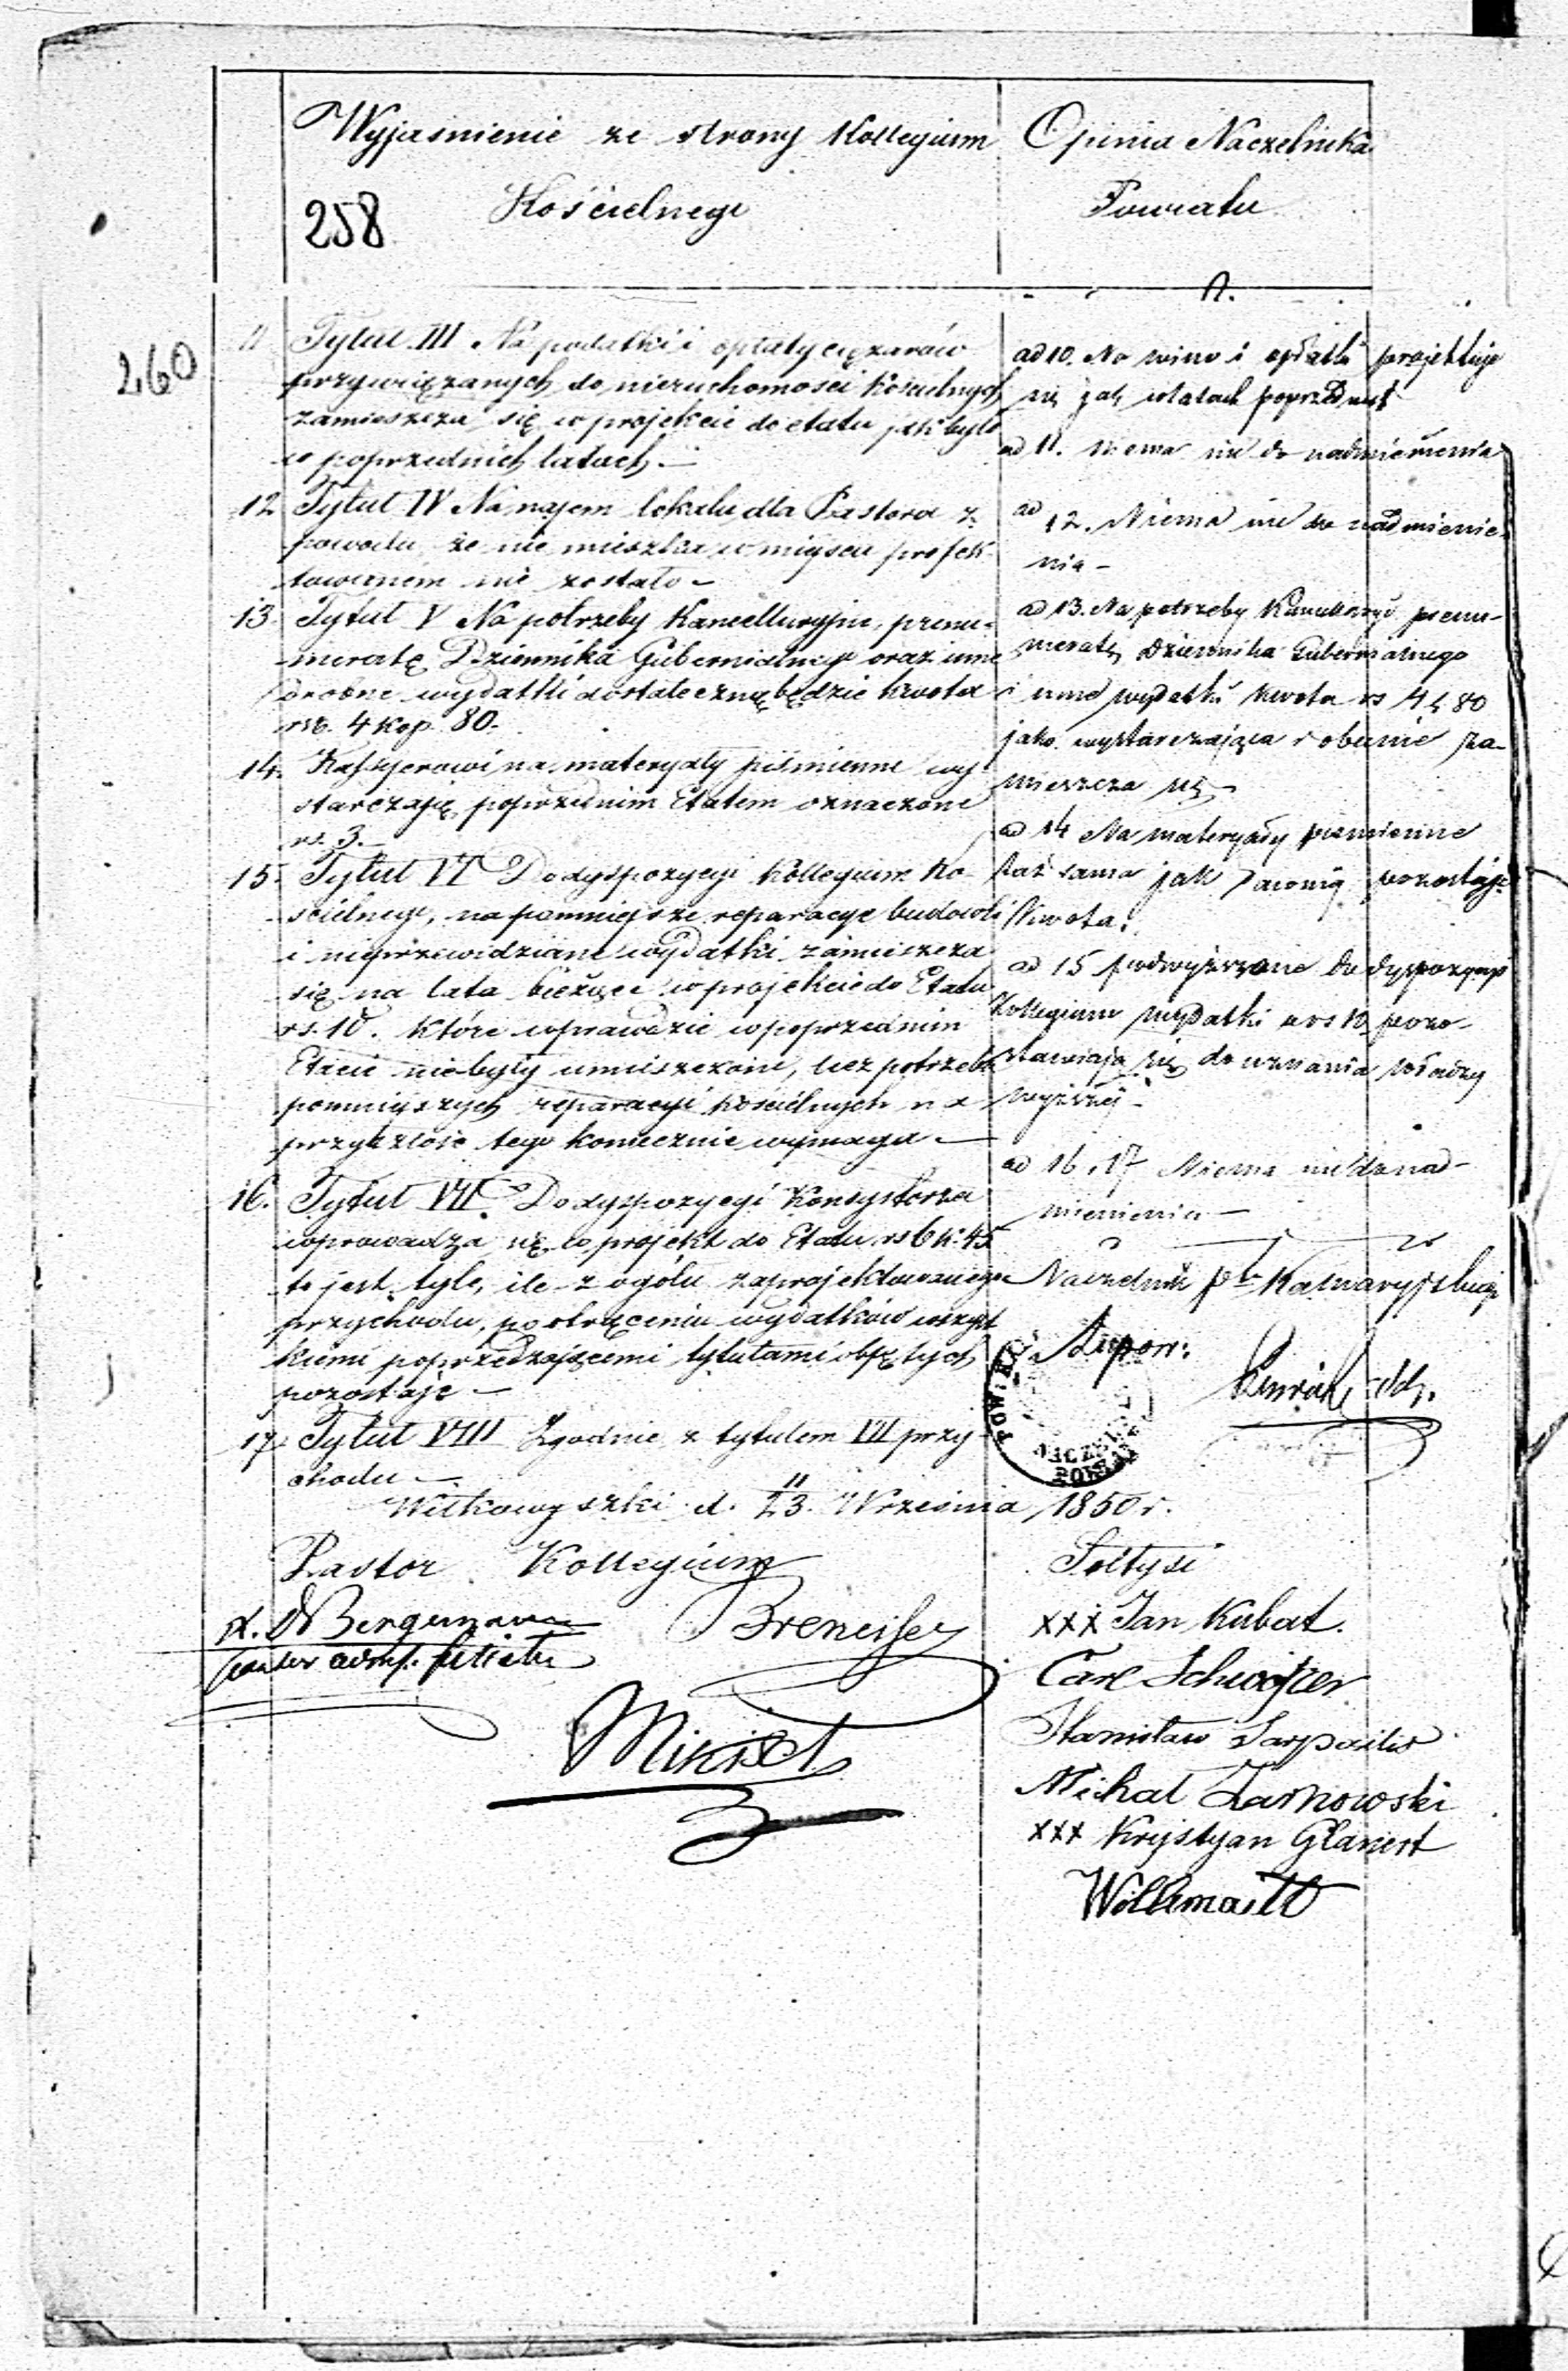 Wyjasnienie ze strony Kollegium
Kościelnego
258
Opinia Naczelnika
Powiatu
260
11 Tytuł III Na podatki i opłaty ciężarów
przywiązanych do nieruchomości Kościelnych
zamieszcza się w projekcie do etatu jak było
w poprzednich latach. —
12 Tytuł IV Na najem lokalu dla Pastora z
powodu że nie mieszka w miejscu projek-
towanem nie zostało —
13. Tytuł V Na potrzeby Kancellaryjne, prenu-
meratę Dziennika Gubernialnego oraz inne
drobne wydatki dostateczną będzie kwota
rsr. 4 kop. 80.
14. Kassyerowi na materyały piśmienne wy-
starczają, poprzednim Etatem oznaczone
rs. 3. —
15. Tytuł VI Do dyspozycyi Kollegium Ko-
ścielnego, na pomniejsze reparacye budowli
i nieprzewidziane wydatki zamieszcza
się na lata bieżące w projekcie do Etatu
rs. 10. które wprawdzie w poprzednim
Etacie nie były umieszczone, lecz potrzeba
pomniejszych reparacyi kościelnych na
przyszłość tego koniecznie wymaga —
16. Tytuł VII. Do dyspozycyi Konsystorza
wprowadza się w projekt do Etatu rs 6 k. 45
to jest tyle, ile z ogółu zaprojektowanego
przychodu, po strąceniu wydatków wszyst
kiemi poprzedzającemi tytułami objętych
pozostaje —
17. Tytuł VIII Zgodnie z tytułem VII przy-
chodu —
ad 10. Na wino i opłatki projektuje
się jak w latach poprzednich
ad 11. niema nic do nadmienienia
ad 12. Niema nic do nadmienie-
nia —
ad 13. Na potrzeby Kancellaryi prenu-
meratę Dziennika Gubernialnego
i inne wydatki kwota rs 4 k 80
jako wystarczająca i obecnie za-
mieszcza się —
ad 14 Na materyały piśmienne
taż sama jak dawniej pozostaje
kwota.
ad 15 podwyższone do dyspozycyi
Kollegium wydatki o rs 10 pozo-
stawiają się do uznania władzy
wyższej —
ad 16 i 17 Niema nic do nad-
mienienia —
Naczelnik ptu Kalwaryjskiego
NACZELNIK POWIATU
Wiłkowyszki d. 11/23. Września 1850 r.
Pastor Kollegium
Sołtysi
X. Bergemann
pastor filiału
Breneiser
Mikiset
xxx Jan Kubat.
Carl Schweizer
Stanisław
Michał Zarnowski
xxx Krystyan Glanert
Willimaitt